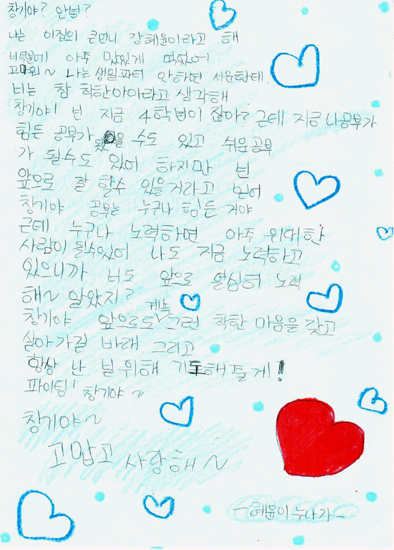 창기야? 안녕?
나는 이집의 큰언니 강혜윤이라고 해
너 때문에 아주 맛있게 먹었어
고마워~ 나는 생일파티 안하면 서운한데
너는 참 착한아이라고 생각해
창기야! 넌 지금 4학년이 잖아? 근데 지금 나공부가
힘든 공부가 될 수도 있고 쉬운공부
가 될수도 있어 하지만 넌
앞으로 잘 할수 있을거라고 믿어
창기야 공부는 누구나 힘든 거야
근데 누구나 노력하면 아주 위대한
사람이 될수있어 나도 지금 노력하고
있으니까 너도 앞으로 열심히 노력
해~ 알았지?
창기야 앞으로도 계속 그런 착한 마음을 갖고
살아가길 바래 그리고
항상 난 널 위해 기도해 둘게!
파이팅! 창기야~
창기야~
고맙고 사랑해~
-혜윤이 누나가-